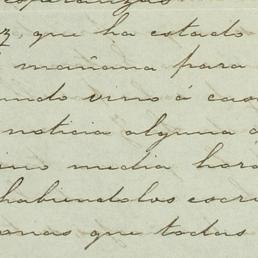 esperanzas
z, que ha estado
mañana para
ndo vino á cas
noticia alguna
ino media hora
habiendolos escri
onas que todas